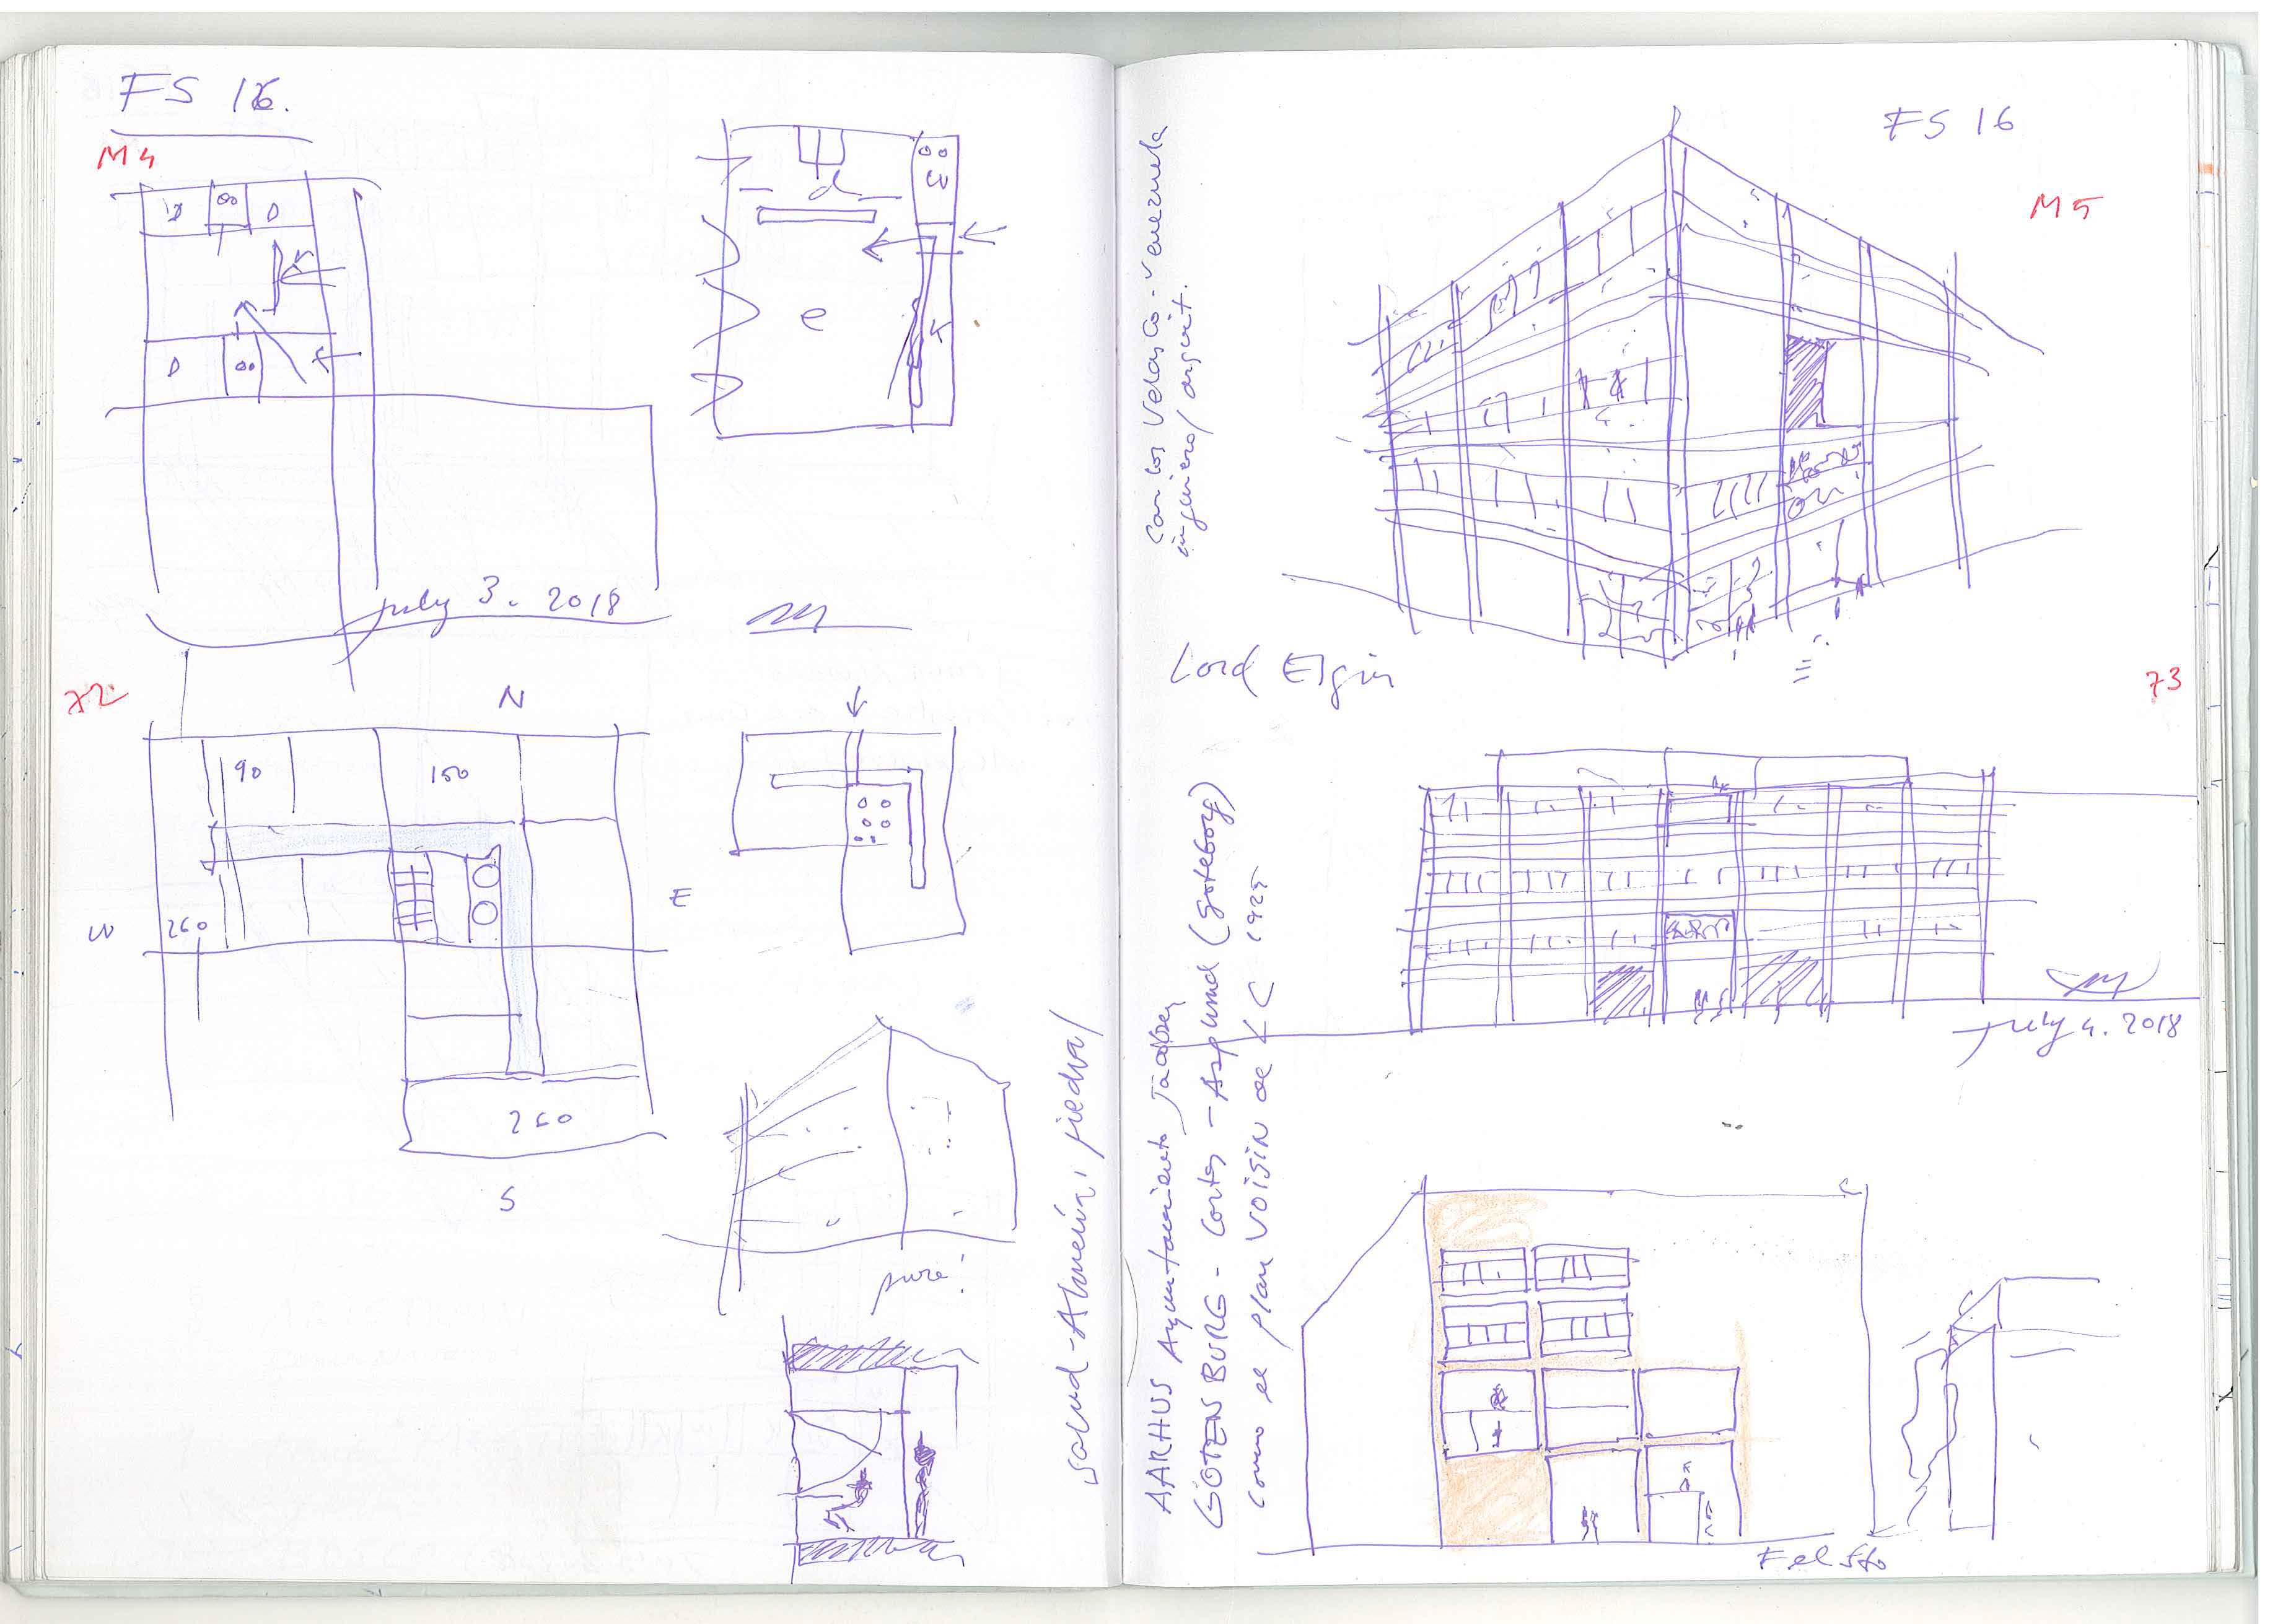 FS 16.
M4
D
D
D
d
e
K
July 3. 2018
72
N
90
150
W
260
E
260
S
pure!
salud - Almería, piedra /
FS 16
M5
Carlos Velasco - Venezuela
ingeniero / arquit.
Lord Elgin
73
July 4. 2018
AARHUS Ayuntamiento Jacobsen
GOTENBURG - Cortes - Asplund (Goteborg)
como el plan VOISIN de LC 1925